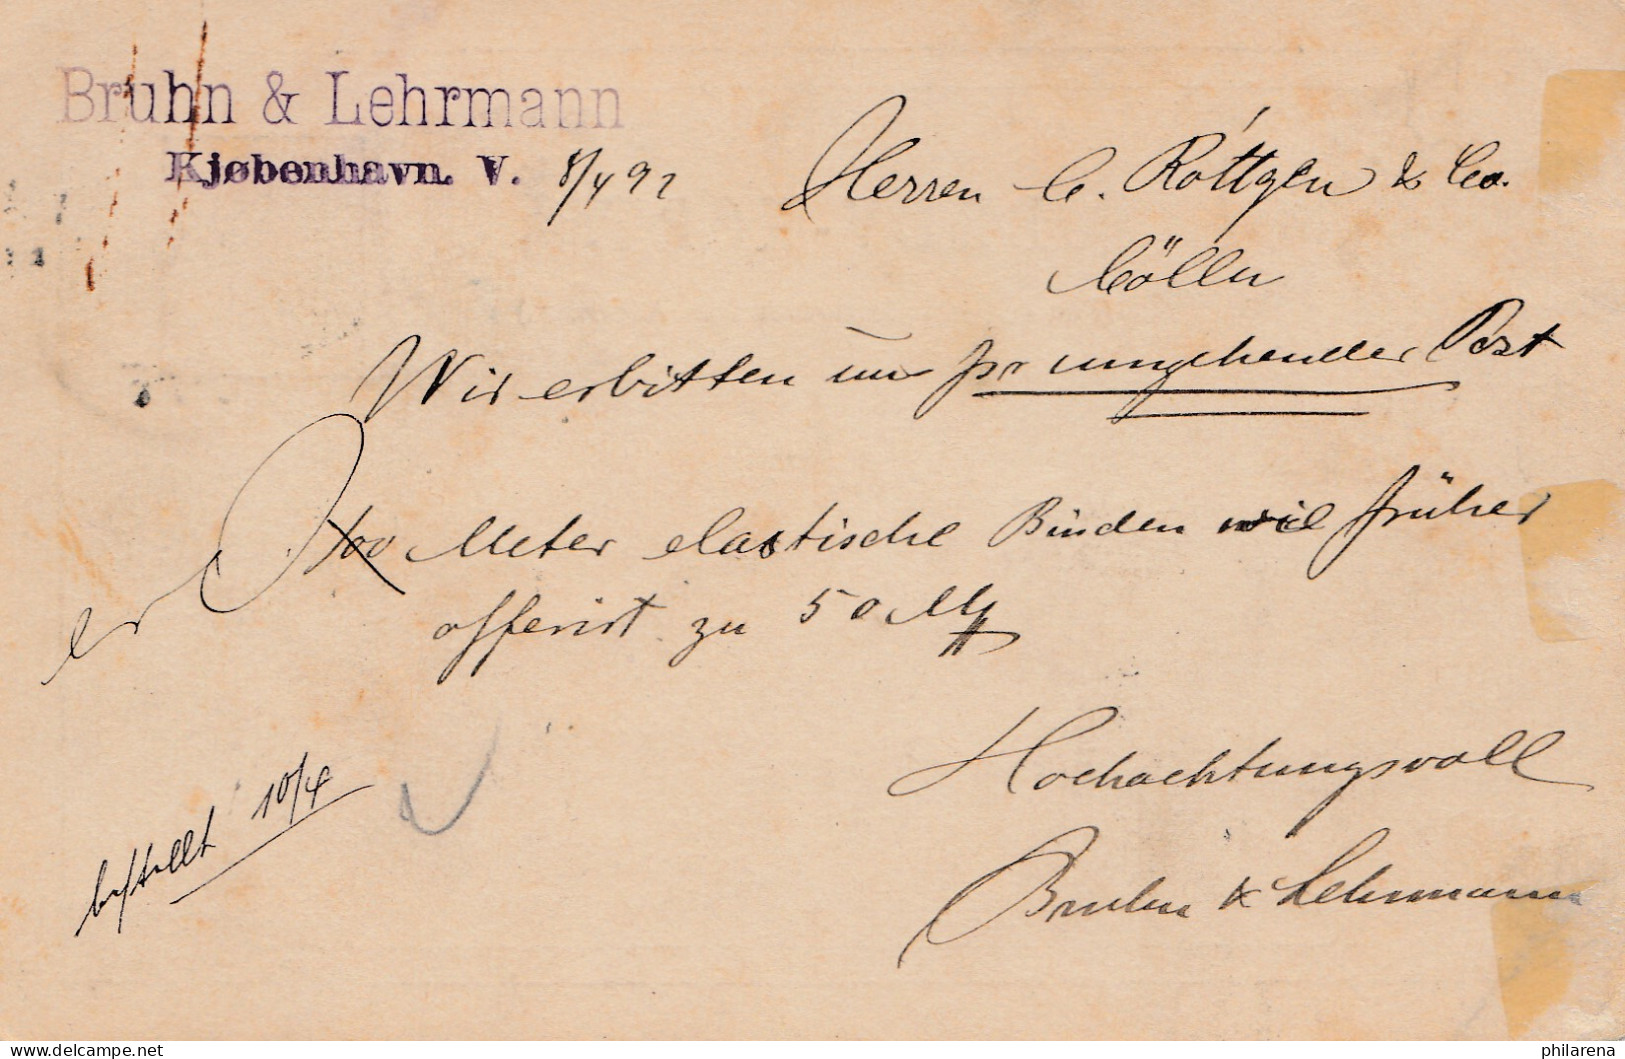 Bruhn & Lehrmann
Kjøbenhavn. V. 8/4 92
Herren C. Röttgen & Co.
Cölln
Wir erbitten uns pr umgehender Post
Meter elastische Binden wie früher
offerirt zu 50 M
Hochachtungsvoll
Bruhn & Lehrmann
bestellt 10/4
delcampe.net
philarena